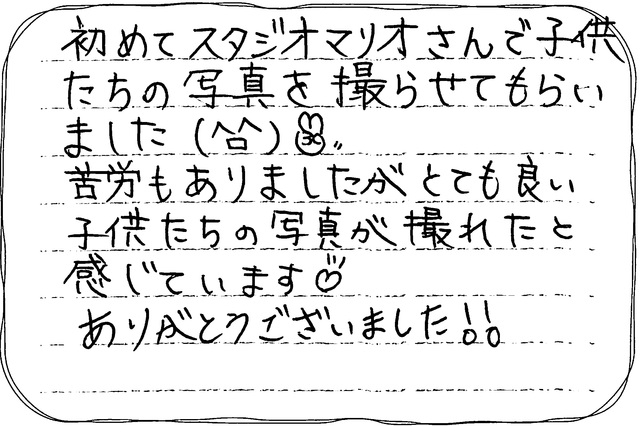 初めてスタジオマリオさんで子供
たちの写真を撮らせてもらい
ました(^o^)
苦労もありましたがとても良い
子供たちの写真が撮れたと
感じています♡
ありがとうございました!!